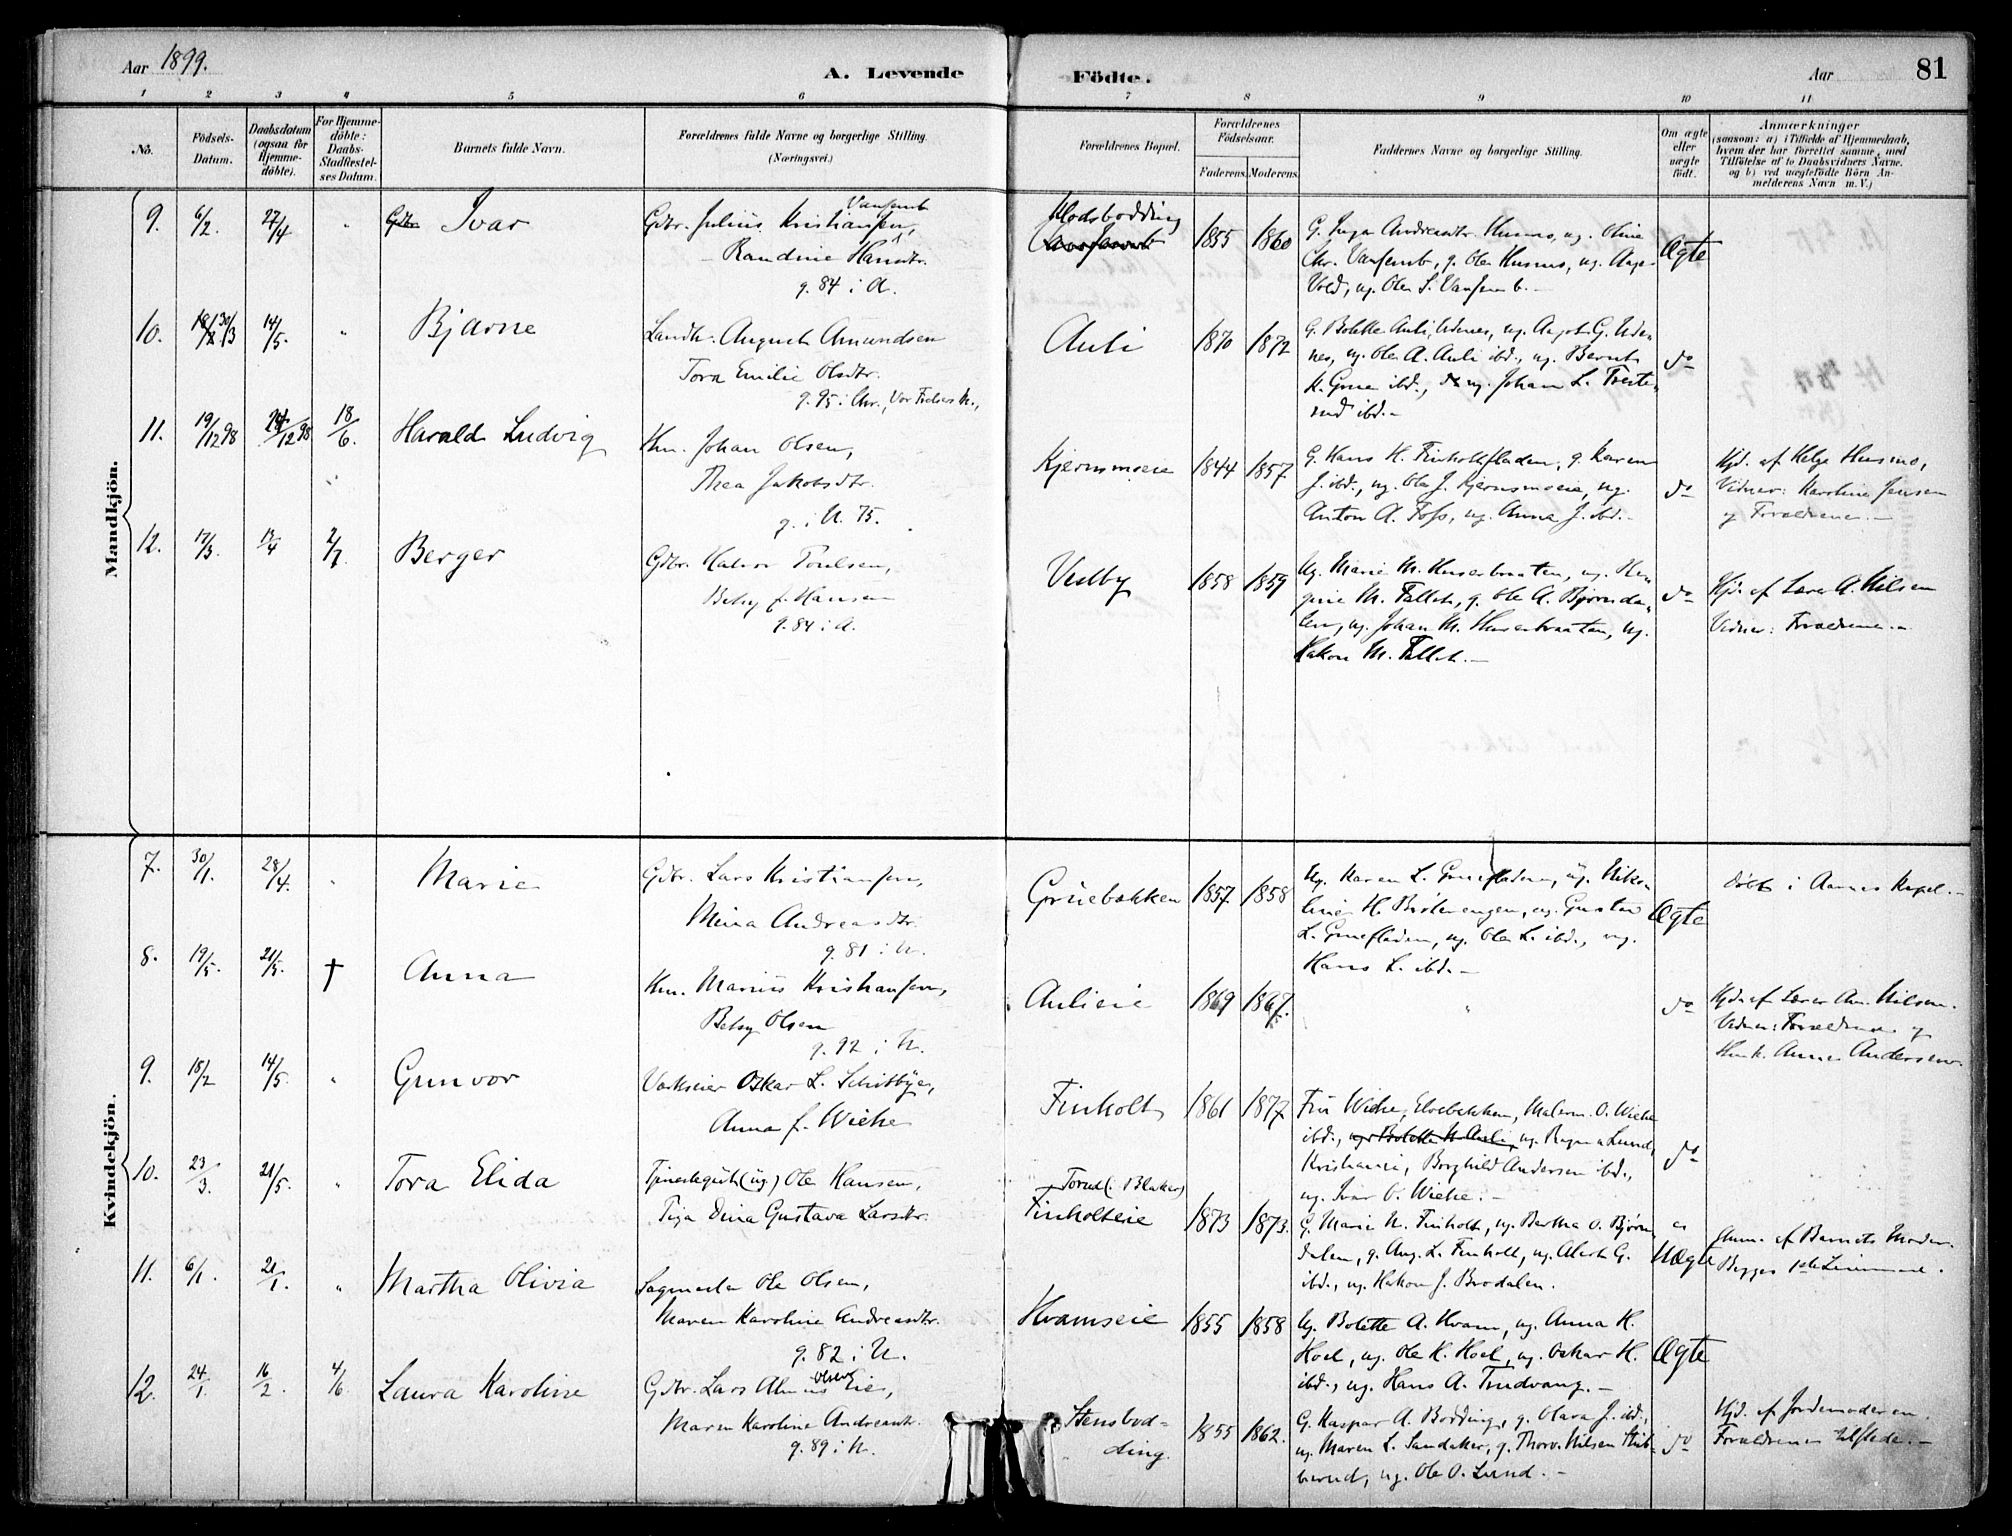 Aar 1899.
A. Levende
Födte.
Aar
81
1 2 3 4 5 6 7 8 9 10 11
No.
Födsels-
Datum.
Daabsdatum
(ogsaa for
Hjemme-
döbte).
For Hjemme-
döbte:
Daabs-
Stadfæstel-
ses Datum.
Barnets fulde Navn.
Forældrenes fulde Navne og borgerlige Stilling.
(Næringsvei.)
Forældrenes Bopæl.
Forældrenes
Födselsaar.
Faderens. Moderens.
Faddernes Navne og borgerlige Stilling.
Om ægte
eller
uægte
födt.
Anmærkninger
(saasom: a) i Tilfælde af Hjemmedaab,
hvem der har forrettet samme, med
Tilföielse af to Daabsvidners Navne.
og b) ved uægtefödte Börn An-
melderens Navn m. V.)
Mandkjön.
9. 6/2. 27/4 " Gdbr. Ivar
Gdbr. Julius Kristiansen, Vansemb
Randine Hansdtr.
g. 84 i A.
Modsbodding
1855 1860
G. Inga Andreasdtr. Husmo, ug. Oline
Chr. Vansemb, g. Ole Husmo, ug. Aage
Vold, ug. Ole S. Vansemb.-
Ægte
10. 30/3 14/5. " Bjarne
Landh. August Amundsen
Tora Emilie Olsdtr.
g. 95 i Chr., Vor Frelsers M.,
Auli 1870 1872
G. Bolette Auli, Udenes, ug. August G. Ude-
nes, ug. Ole A. Auli ibd., ug. Bernt
H. Grue ibd., ug. Johan L. Treste-
rud ibd.-
do
11. 19/12 98 /12 98 18/6. Harald Ludvig
Hm. Johan Olsen,
Thea Jakobsdtr.
g. i U. 75.
Kjernsmoeie 1844 1857
G. Hans H. Finholtfladen, g. Karen
J. ibd., ug. Ole J. Kjernsmoeie, ug.
Anton A. Foss, ug. Anna J. ibd.-
do
Hjd. af Helge Husmo,
Vidner: Karoline Jensen
og Forældrene.-
12. 17/3. /4 2/7. Berger
Gdbr. Halvor Poulsen,
Betsy f. Hansen
g. 84 i A.
Vestby 1858 1859
Ug. Marie M. Huserbraaten, ug. Hen-
gine M. Tallet, g. Ole A. Bjørnda-
len, ug. Johan M. Huserbraaten, ug.
Hakon M. Tallet.-
do
Hjd. af Lærer A. Nilsen
Vidner: Forældrene.-
Kvindekjön.
7. 30/1. 28/4. " Marie
Gdbr. Lars Kristiansen,
Mina Andreasdtr.
g. 81 i U.
Gruebakken 1857 1858
Ug. Karen L. Gruefladen, ug. Niko-
line H. Bastenengen, ug. Gustav
L. Gruefladen, ug. Ole L. ibd., ug.
Hans L. ibd.-
Ægte
Døbt i Aarnes Kapel.-
8. 19/5. 21/5. † Anna
Hm. Marius Kristiansen,
Betsy Olsen
g. 92 i U.
Aulieie 1869 1867.
"
do
Hjd. af Lærer Am. Nilsen.
Vidner: Forældrene og
Husk. Anna Andersen.
9. 18/2 14/5. " Gunvor
Værkseier Oskar L. Schibbye,
Anna f. Wiche
Finholt 1861 1877
Fru Wiche, Elvebakken, Malerm. O. Wiche
ibd., ug. Bolette N. Auli, ug. Ragna Lund,
Kristiania, Borghild Andersen ibd.,
ug. Ivar O. Wiche.-
do
10. 23/3. 21/5. " Tora Elida
Tjenestegut (ug.) Ole Hansen,
Pige Dina Gustava Larsdtr.
Torud (i Blaker)
Finholteie 1873 1873.
G. Marie N. Finholt, ug. Bertha O. Bjørn-
dalen, g. Aug. L. Finholt, ug. Albert G.
ibd., ug. Hakon J. Brodalen.
Uægte
Anm. af Barnets Moder.
Begges 1ste Leiermaal.
11. 6/1. 21/1. " Martha Olivia
Sagmester Ole Olsen,
Maren Karoline Andreasdtr.
g. 82 i U.
Hvamseie 1855 1858
Ug. Bolette A. Hvam, ug. Anna K.
Hoel, ug. Ole K. Hoel, ug. Oskar H.
ibd., ug. Hans A. Trudvang.-
Ægte
12. 24/1. 16/2. 4/6 Laura Karoline
Gdbr. Lars Olsen Eie,
Maren Karoline Andreasdtr.
g. 89 i U.
Stensbod-
ding. 1855 1862.
G. Kaspar A. Bodding, g. Olava J. ibd.,
ug. Maren L. Sandaker, g. Thorv. Nilsen Stub-
berud, ug. Ole O. Lund.-
do
Hjd. af Jordemoderen.
Forældrene tilstede.-